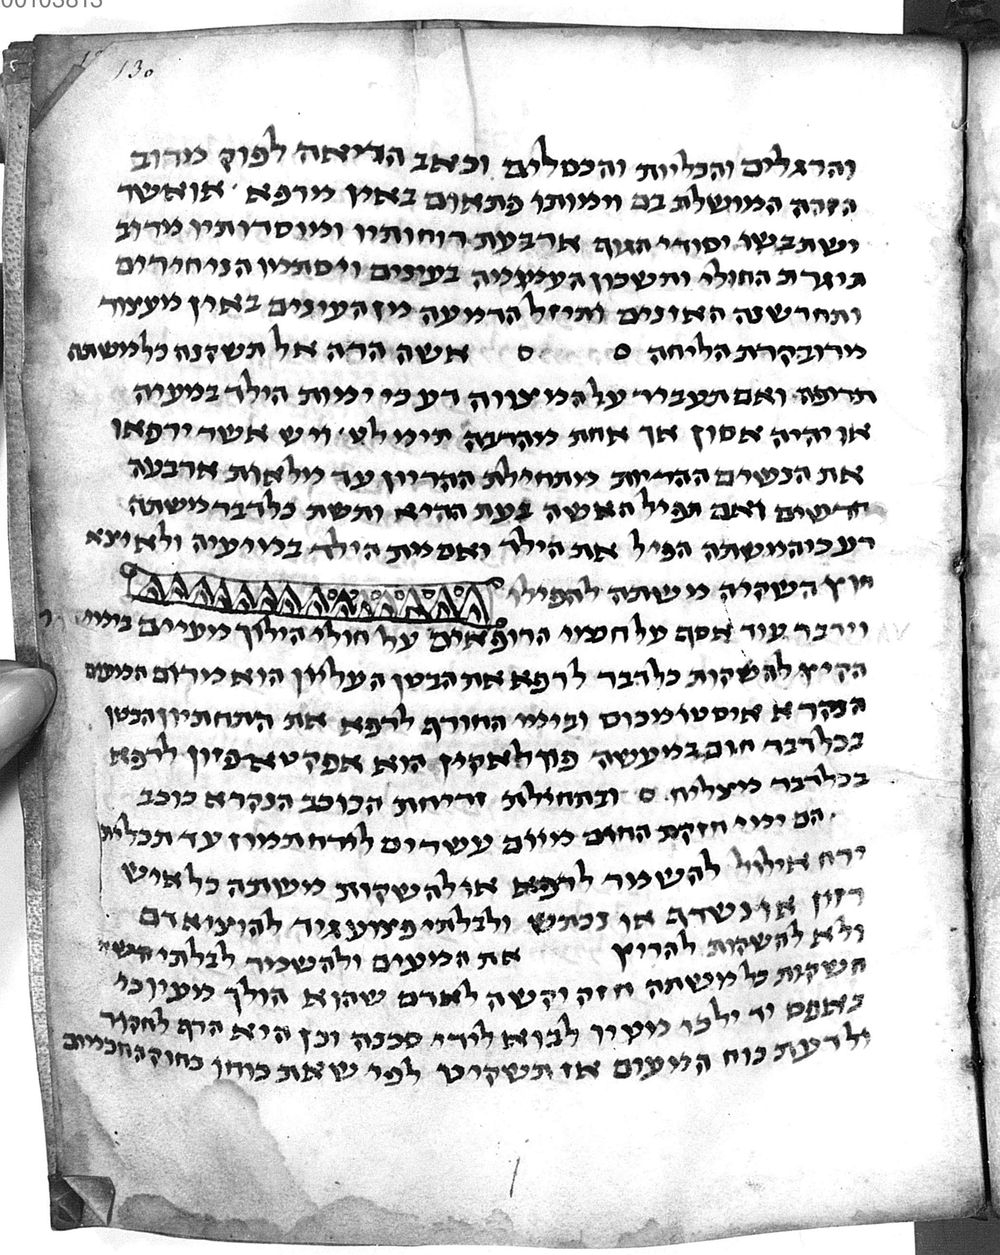 00103813
130
והרגלים והכליות והכסלים וכאב הריאה לפוק מרוב
הזהה המושלת בם וימותו פתאום באין מרפא אואשר
ישתבשו יסודי הגוף ארבעת רוחותיו ומוסדותיו מרוב
תיגרת החולי ותשכון העינים ויסתמו הנחירים
ותחרשנה האזנים ותיזל הדמעה מן העינים באין מעצור
מרוב קרת הליחה אשה הרה אל תשקנה כל משתה
תרופה ואם תעביר על המיצווה דע כי ימות הילד במעיה
או יהיה אסון אך אחת מהרבה תימלט ויש אשר ירפאו
את הנשים ההריות מתחילת ההריון עד מלאות ארבעה
חדשים ואם תפיל האשה בעת ההיא ותשת כל דבר משתה
דע כי המשתה הפיל את הילד ואם מת הילד במיעיה ולא יצא
חוץ השקיה משתה להפילו
וידבר עוד אסף על חטמי הרופאים על חולי הולך מעיים בימי
הקיץ להשקות כל דבר לרפא את הבטן העליון הוא מרום המעים
הנקרא איסטומכוס ובימי החורף לרפא את התחתיון הבטן
בכל דבר חום במעשה הוא לרפא
בכל דבר מיצליח ובתחילת זריחת הכוכב הנקרא כוכב
הם ימי חזקת החום מיום עשרים לירח תמוז עד תכלית
ירח אילול להשמר לרפא או להשקות משתה כל איש
רזון או נשדף או נכתש ולבלתי פצוע גיד להוציא דם
ולא להשקות להריץ את המעים ולהשמר לבלתי
השקות כל משתה חזק וקשה לאדם שהוא הולך מעיו כי
באפס יד ילכו מעיו לבוא לידי סכנה וכן היא הדת לחקור
ולדעת כוח המעים אז תשקיט לפי שאת כוחן כחוק החכמים